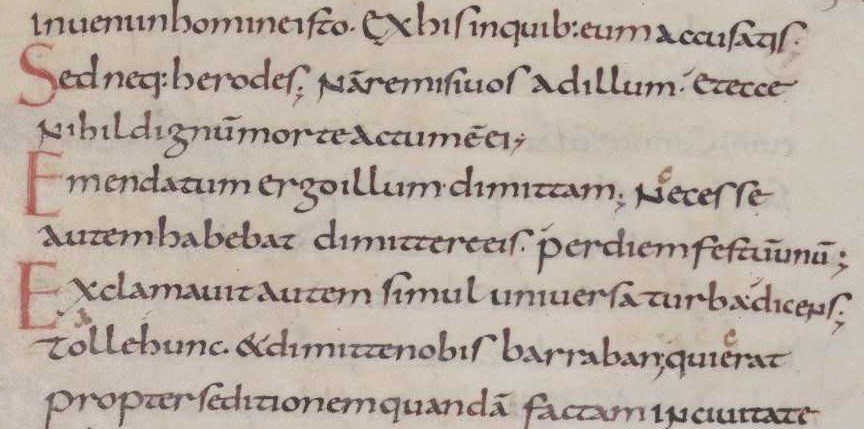 inuenunhomineisto. Exhisinquib:eum accusatis;
Sed neq: herodes; Nāremisiuos adillum. Etecce
Nihildignūmorteactumēei;
Emendatum ergoillum dimittam; Necesse
autemhabebat dimittereeis. perdiemfestūunū;
Exclamauitautem simul uniuersaturbadicens;
Tollehunc. &dimittenobis barraban; quierat
propterseditionemquandā factaminciuitate